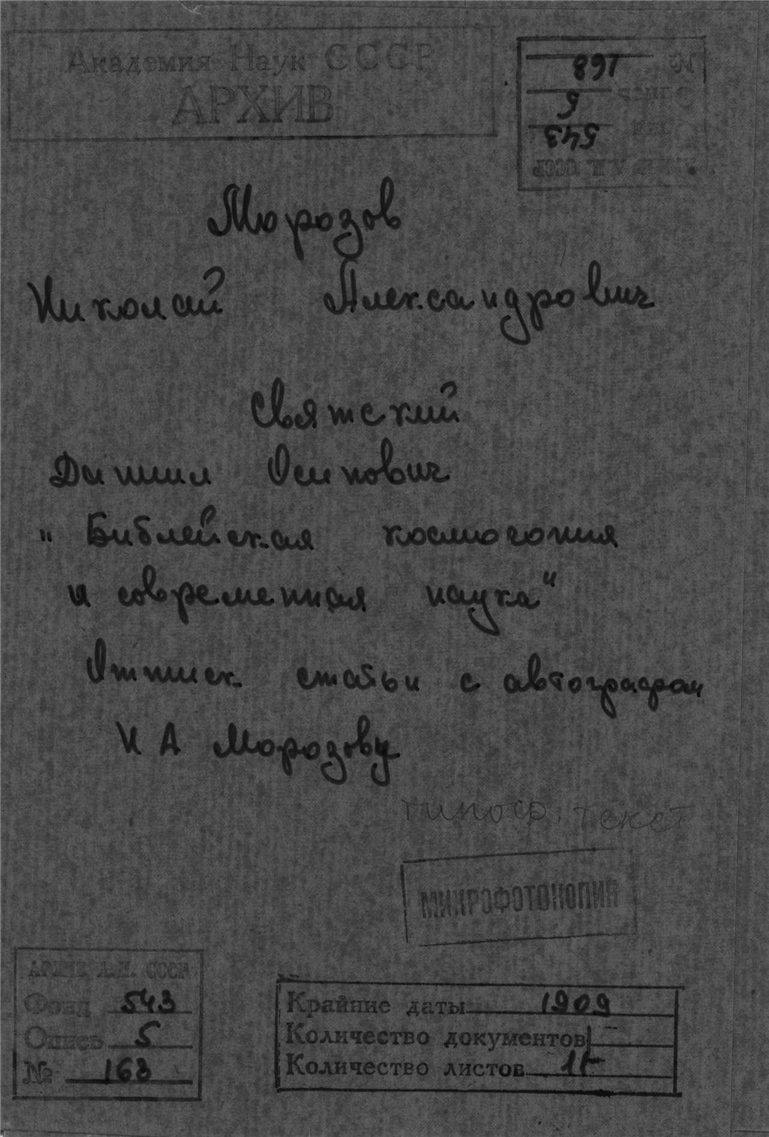 Академия Наук СССР
АРХИВ
№ 168
Опись 5
Фонд 543
АРХИВ А.Н. СССР
Морозов
Николай Александрович
Святский
Даниил Осипович
„Библейская космогония
и современная наука“
Оттиск статьи с автографом
Н А Морозову
типогр. текст
МИКРОФОТОКОПИЯ
АРХИВ А.Н. СССР
Фонд 543
Опись 5
№ 168
Крайние даты 1909
Количество документов
Количество листов